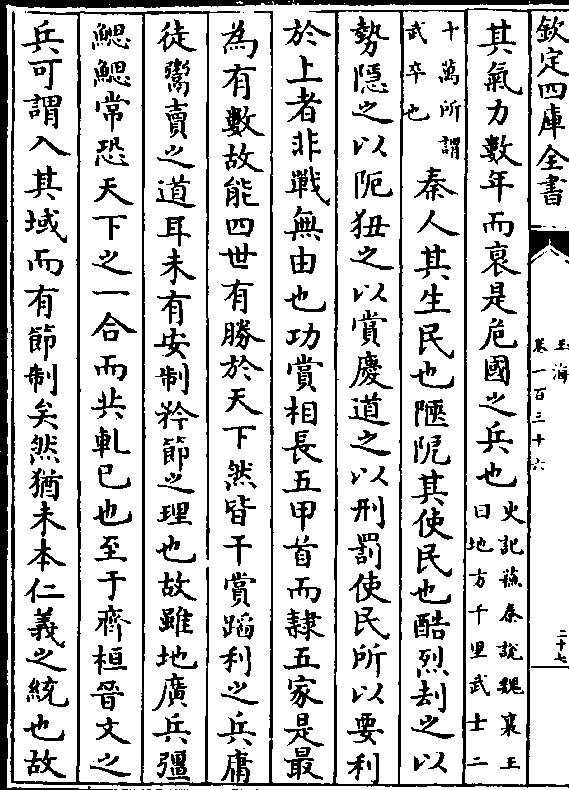 欽定四庫全書
玉海
卷一百三十六
二十七
其氣力數年而衰是危國之兵也史記蘇秦說魏襄王
曰地方千里武士二
十萬所謂
武卒也
秦人其生民也陿阸其使民也酷烈刦之以
勢隱之以阸狃之以賞慶道之以刑罰使民所以要利
於上者非戰無由也功賞相長五甲首而隷五家是最
為有數故能四世有勝於天下然皆干賞蹈利之兵庸
徒鬻賣之道耳未有安制矜節之理也故雖地廣兵彊
鰓鰓常恐天下之一合而共軋已也至于齊桓晉文之
兵可謂入其域而有節制矣然猶未本仁義之統也故